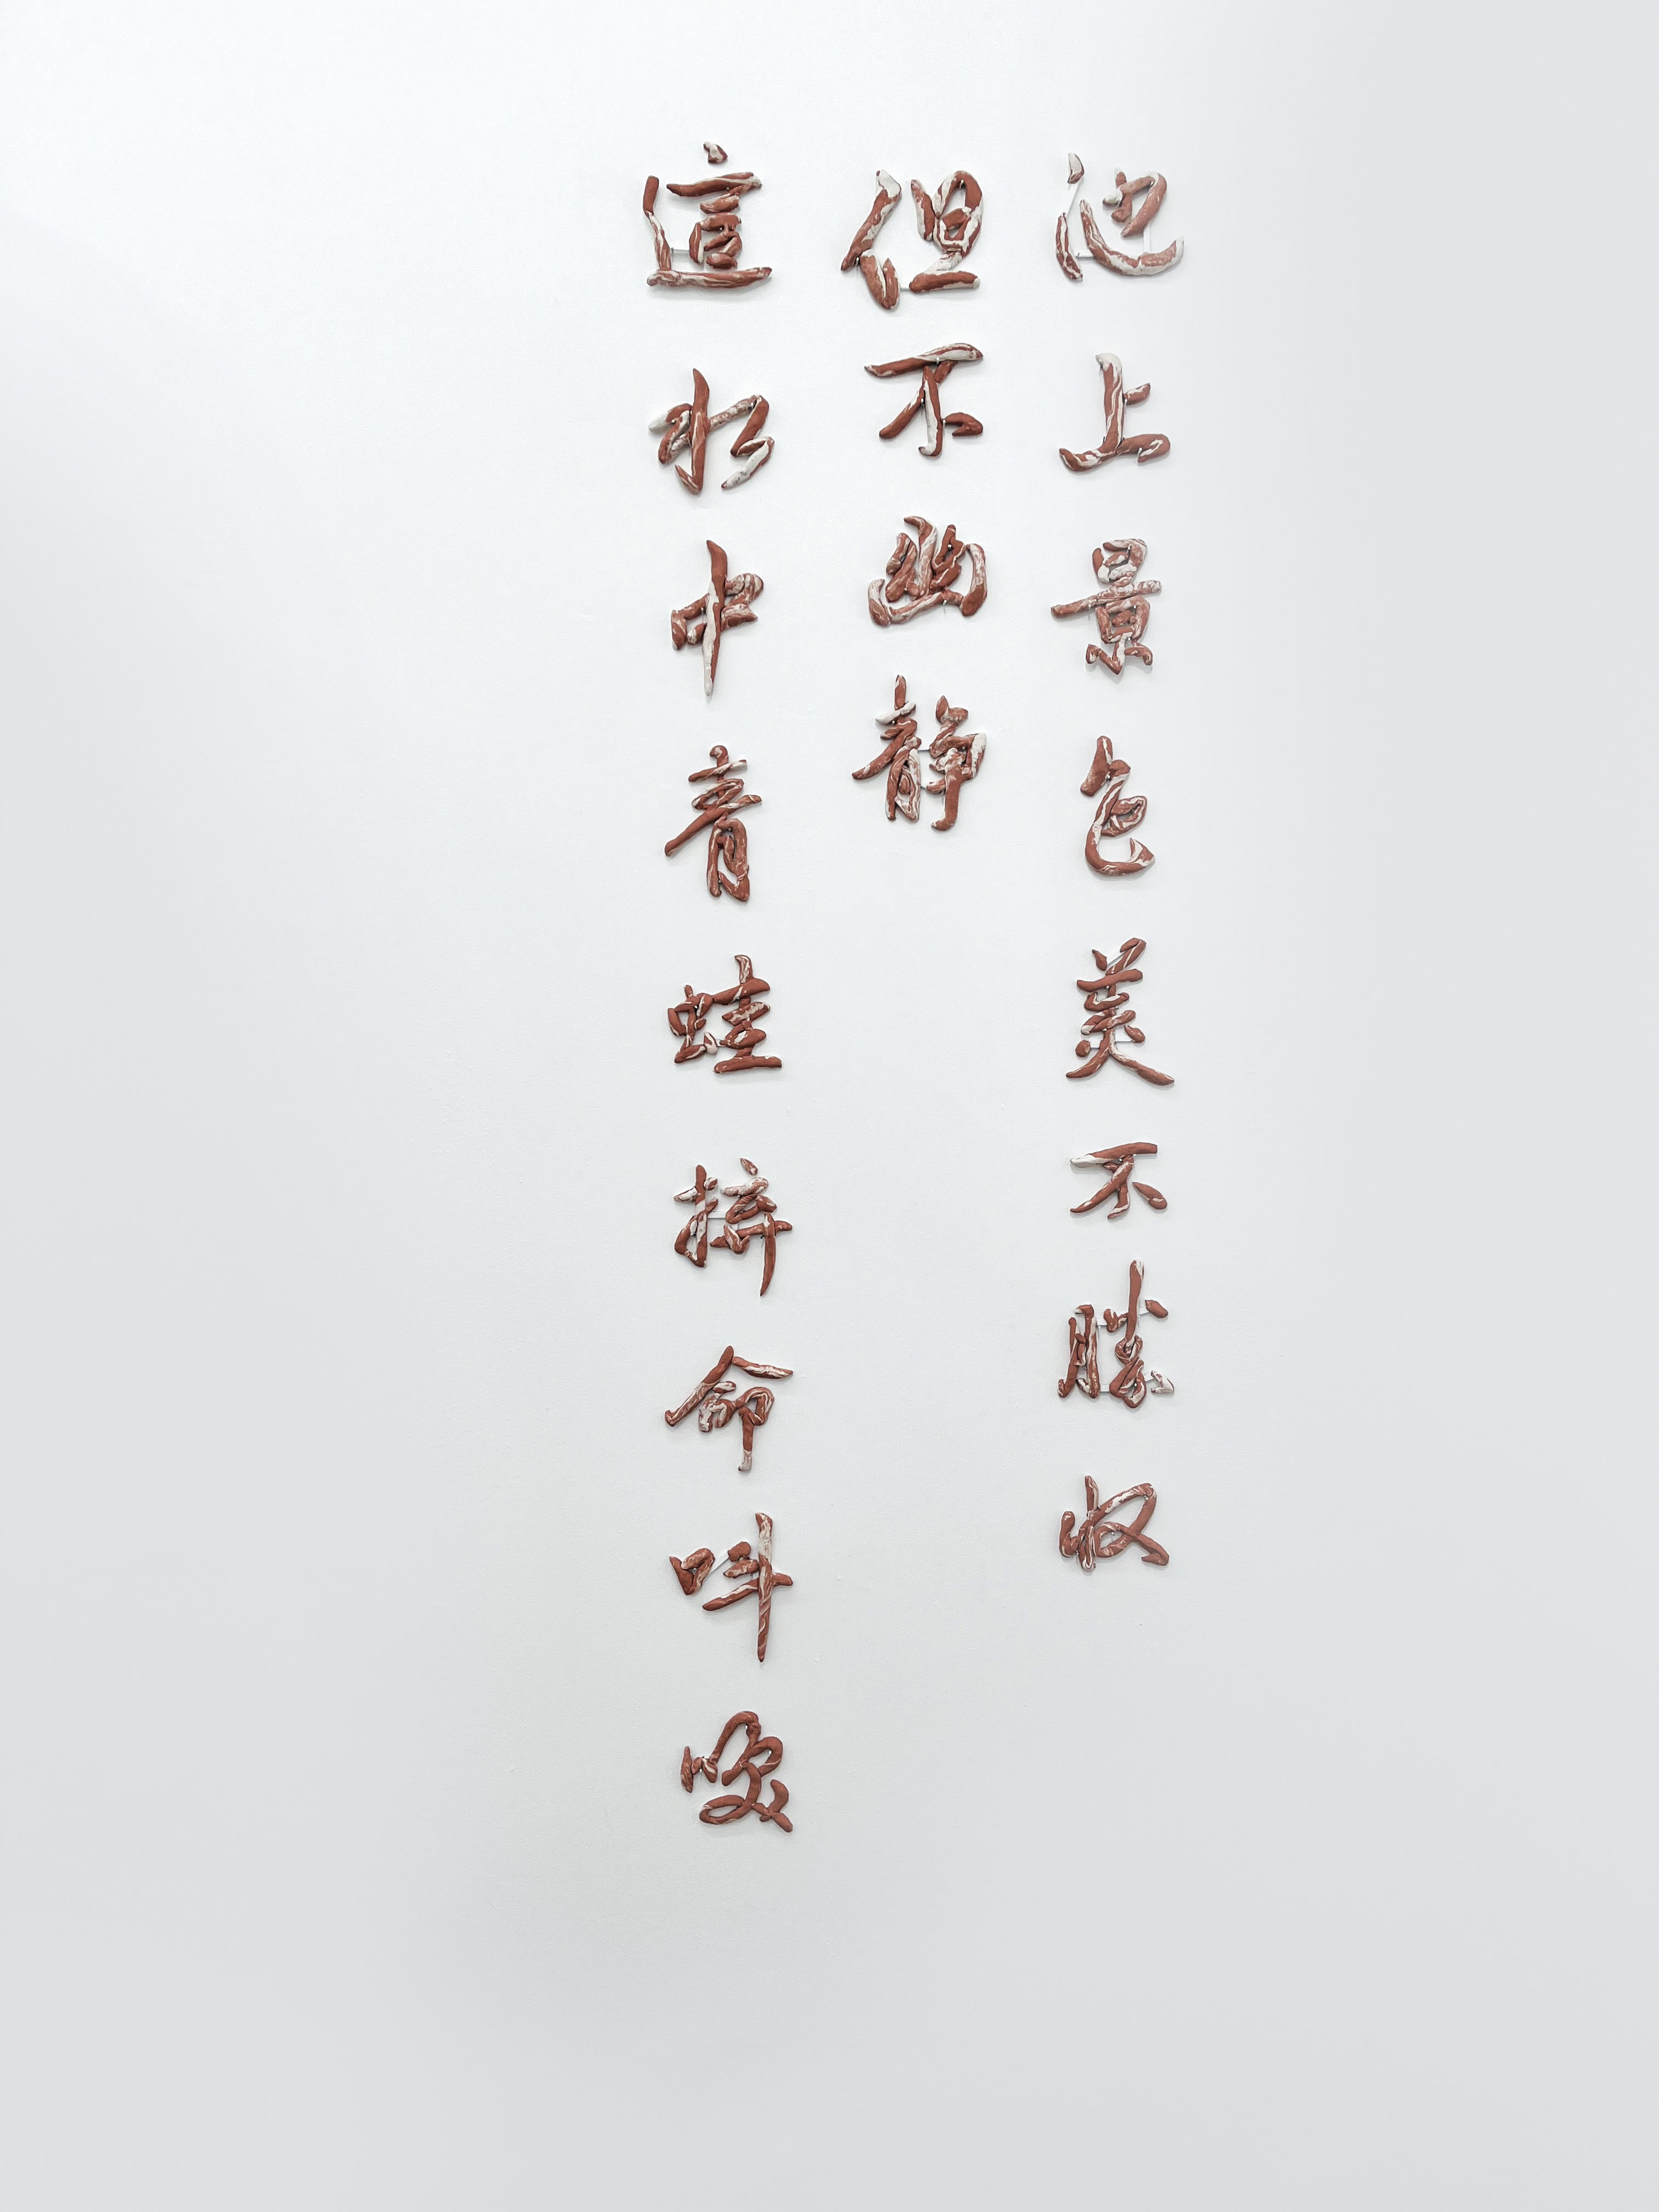 池上景色美不勝收
但不幽静
這水中青蛙拚命叫唤